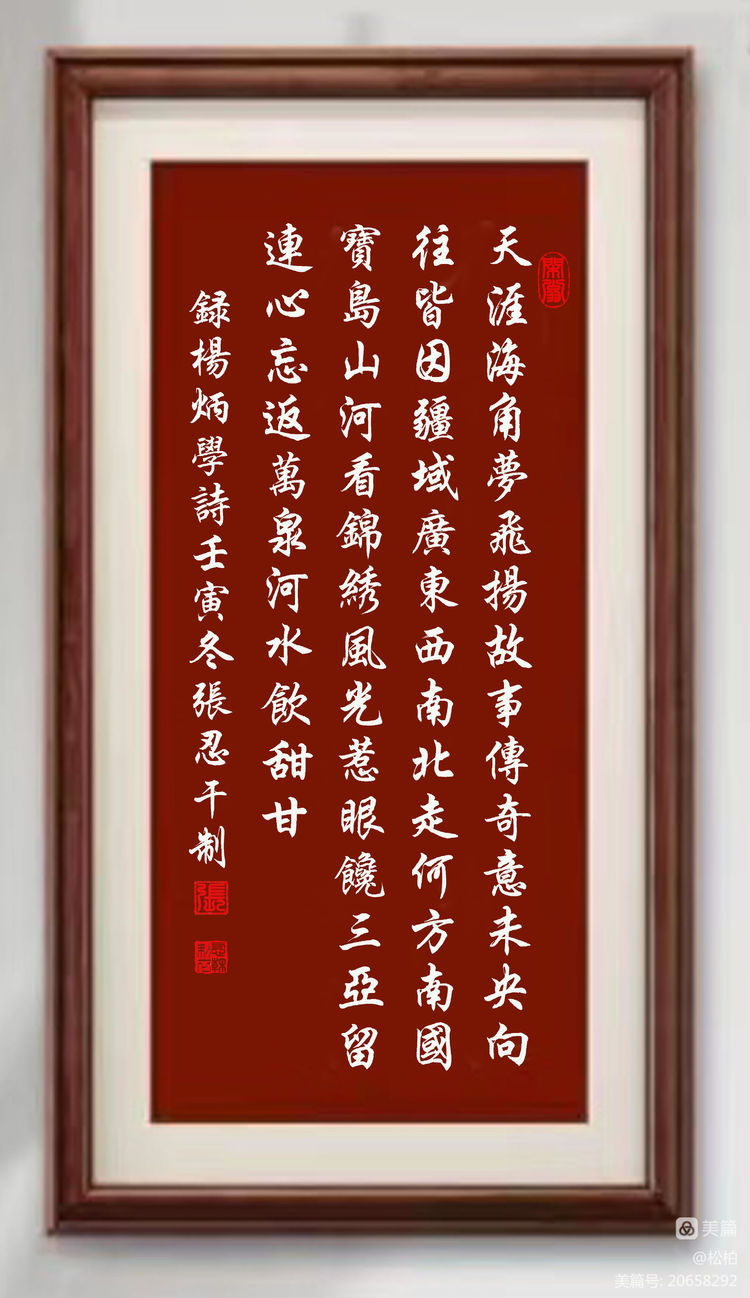 天涯海角夢飛揚故事傳奇意未央向
往皆因疆域廣東西南北走何方南國
寶島山河看錦綉風光惹眼饞三亞留
連心忘返萬泉河水飲甜甘
録楊炳學詩壬寅冬張忍干制
張
美篇
@松柏
美篇号: 20658292